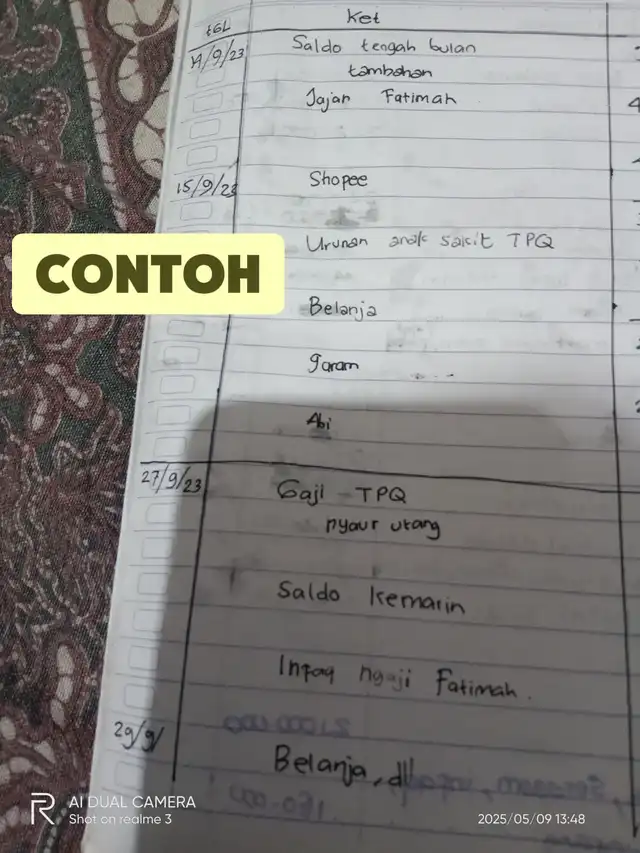 TGL Ket
14/9/23 Saldo tengah bulan
tambahan
Jajan Fatimah
15/9/23 Shopee
Urunan anak sakit TPQ
CONTOH
Belanja
garam
Abi
27/9/23 Gaji TPQ
nyaur utang
Saldo kemarin
Infaq ngaji Fatimah.
29/9/ Belanja, dll
AI DUAL CAMERA
Shot on realme 3
2025/05/09 13:48